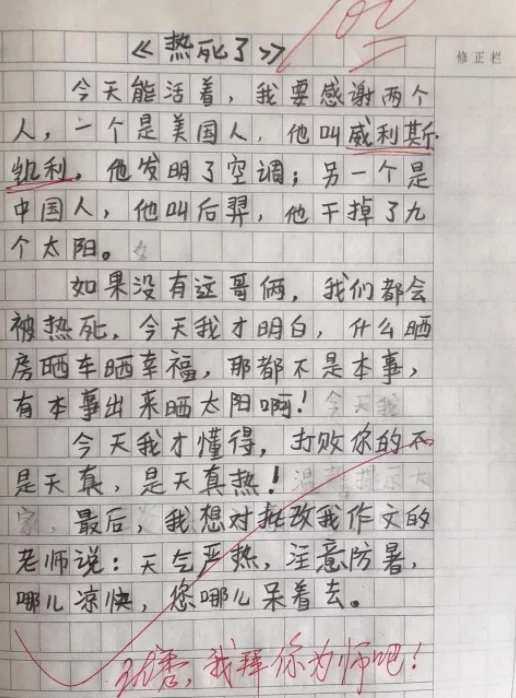 100
修正栏
《热死了》
今天能活着，我要感谢两个
人，一个是美国人，他叫威利斯
凯利，他发明了空调；另一个是
中国人，他叫后羿，他干掉了九
个太阳。
如果没有这哥俩，我们都会
被热死，今天我才明白，什么晒
房晒车晒幸福，那都不是本事，
有本事出来晒太阳啊！
今天我才懂得，打败你的不
是天真，是天真热！
最后，我想对批改我作文的
老师说：天气严热，注意防暑，
哪儿凉快，您哪儿呆着去。
优秀，我拜你为师吧！